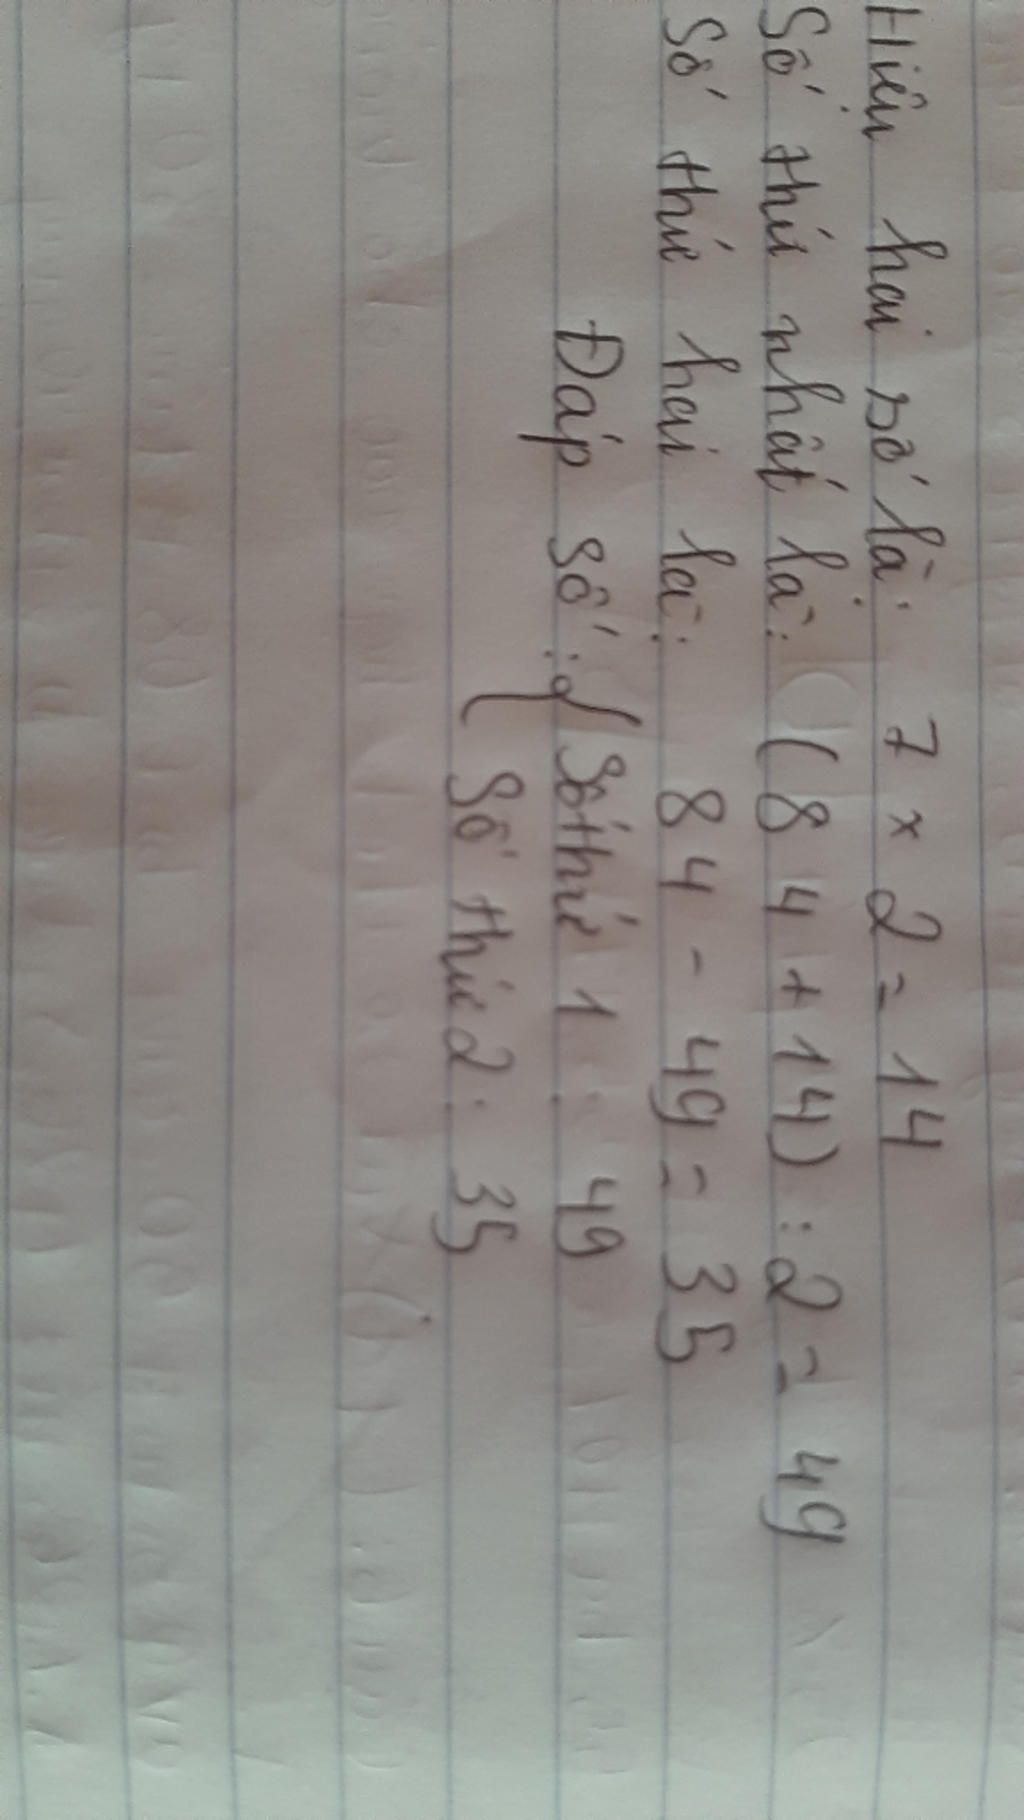 Hiệu hai số là: 7 x 2 = 14
Số thứ nhất là: (84 + 14) : 2 = 49
Số thứ hai là: 84 - 49 = 35
Đáp số: { Số thứ 1 : 49
{ Số thứ 2 : 35